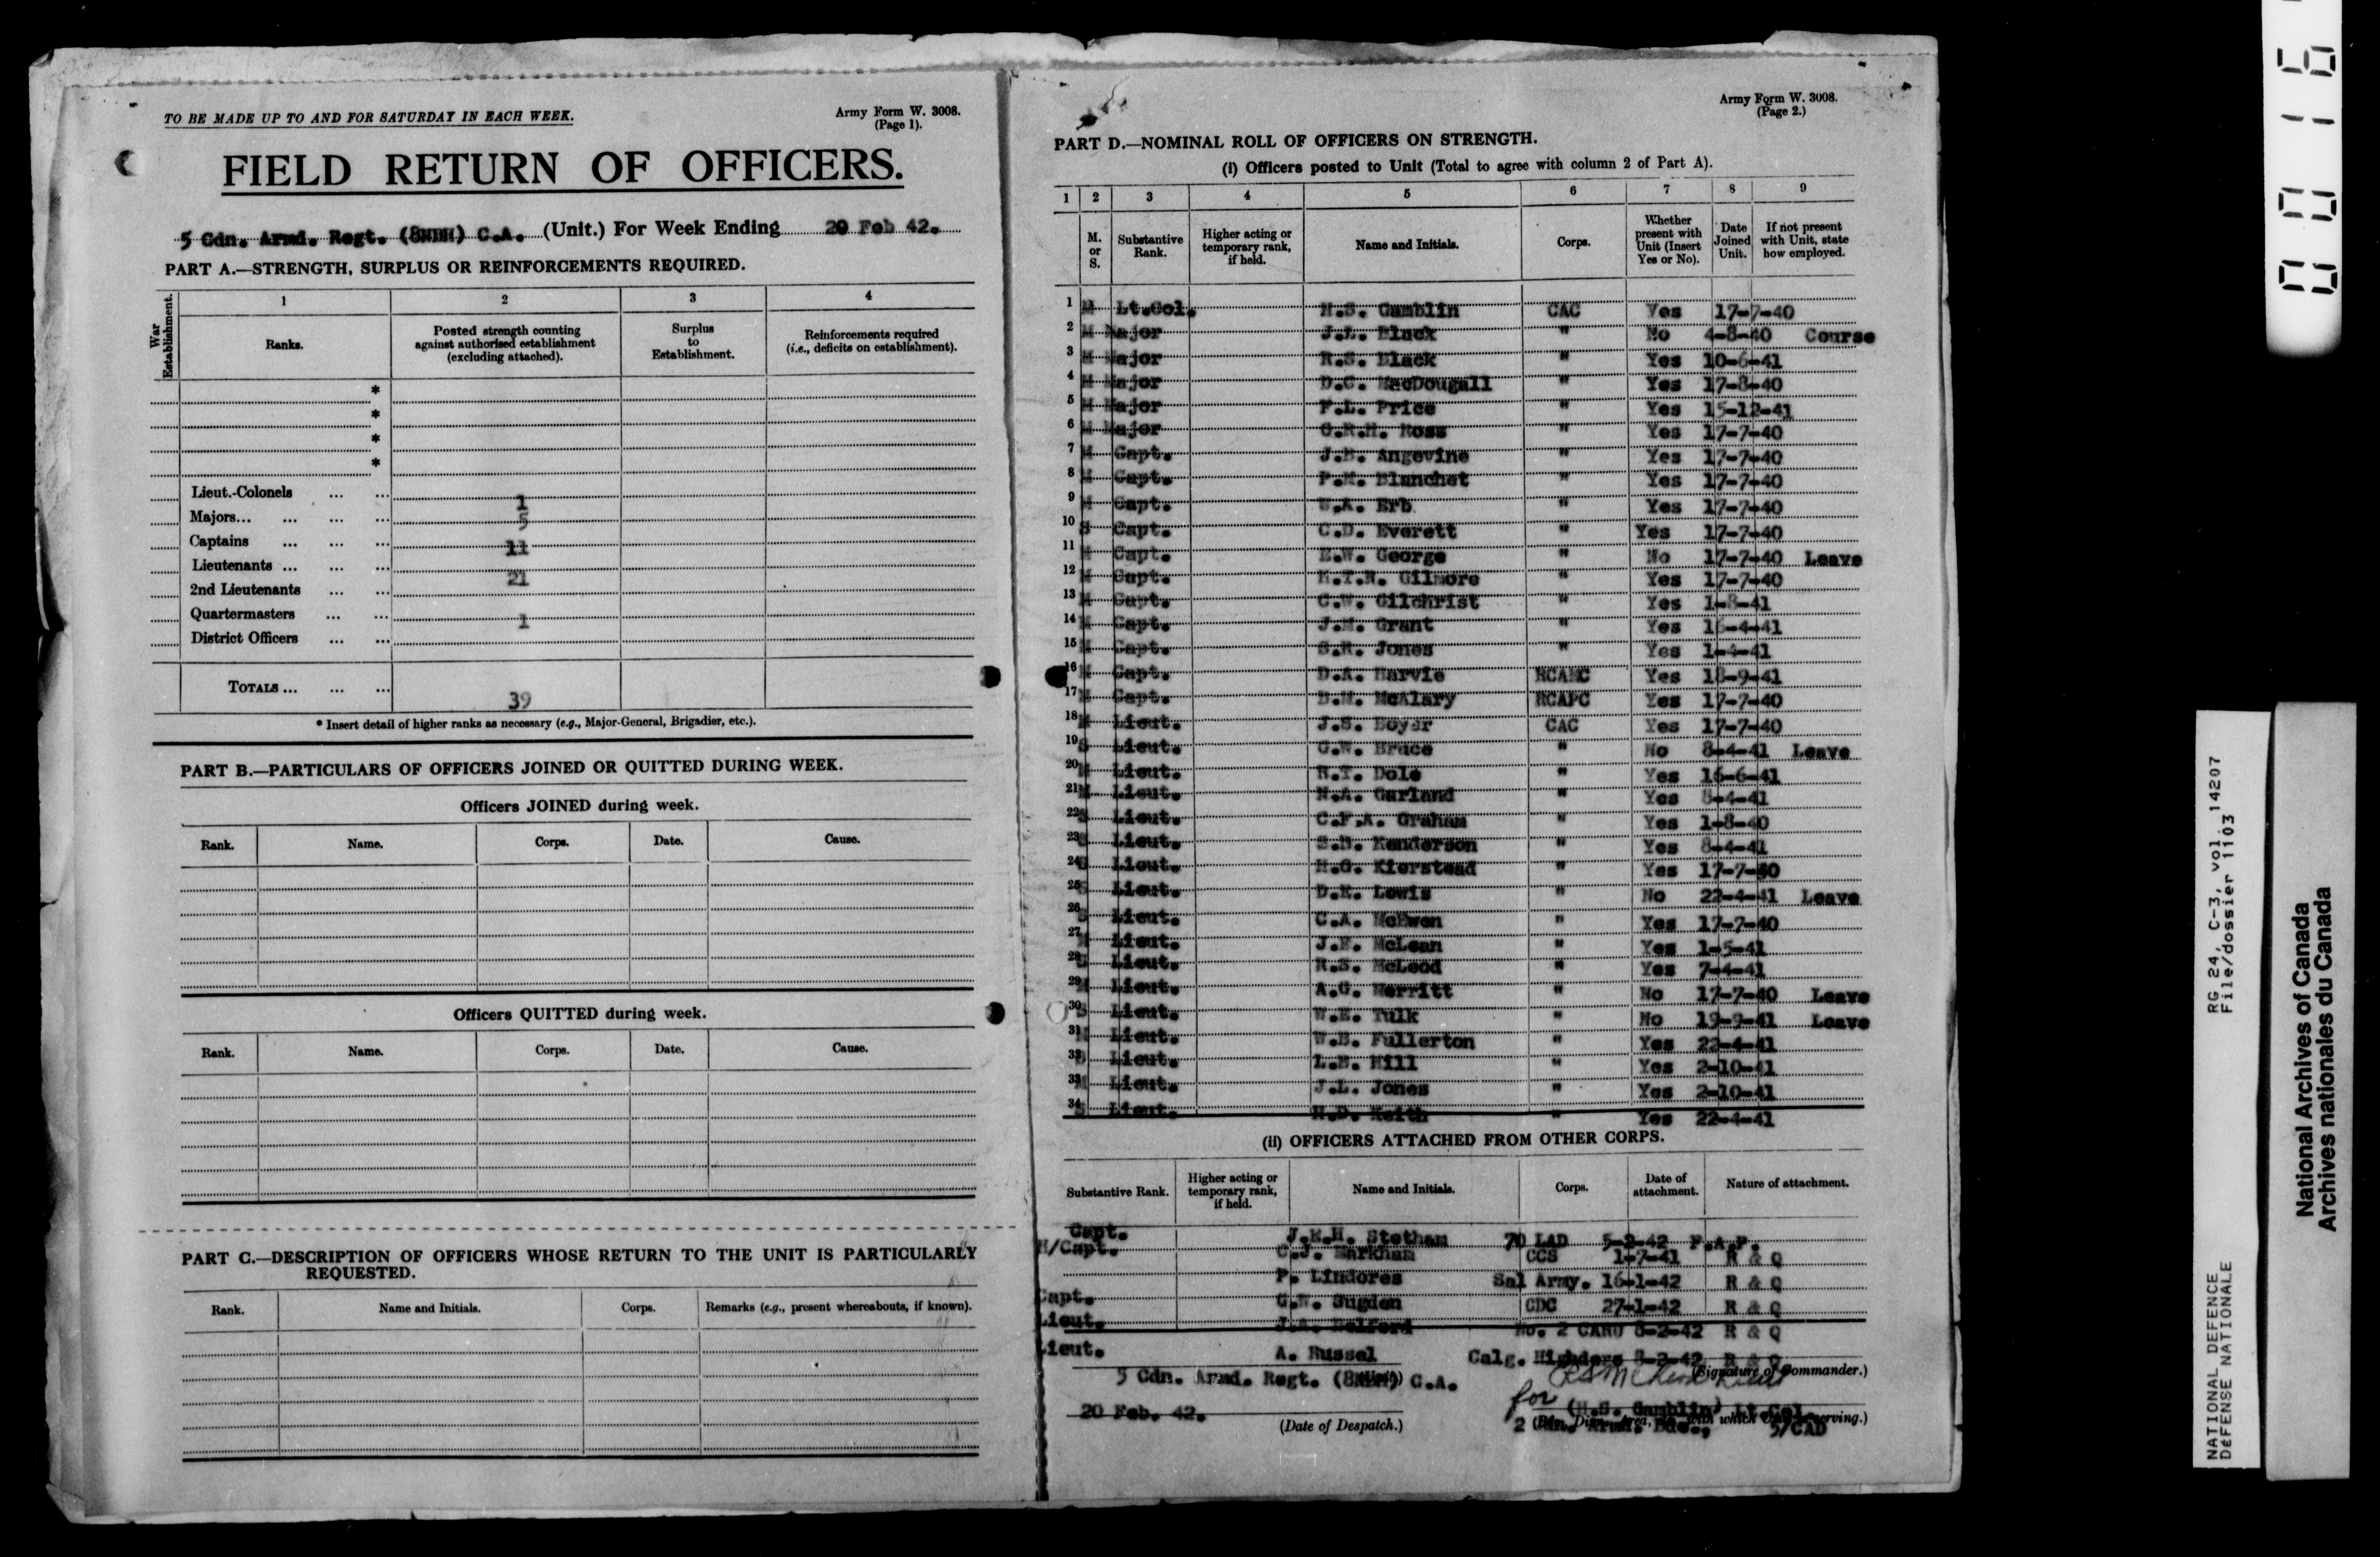 TO BE MADE UP TO AND FOR SATURDAY IN EACH WEEK.
Army Form W. 3008.
(Page 1).
FIELD RETURN OF OFFICERS.
5 Cdn. Armd. Regt. (8NBH) C.A. (Unit.) For Week Ending 20 Feb 42.
PART A.—STRENGTH, SURPLUS OR REINFORCEMENTS REQUIRED.
War Establishment.
1 2 3 4
Ranks. Posted strength counting against authorised establishment (excluding attached). Surplus to Establishment. Reinforcements required (i.e., deficits on establishment).
*
*
*
*
Lieut.-Colonels ... ... 1
Majors... ... ... ... 5
Captains ... ... ... 11
Lieutenants ... ... ... 21
2nd Lieutenants ... ...
Quartermasters ... ... 1
District Officers ... ...
TOTALS ... ... ... 39
* Insert detail of higher ranks as necessary (e.g., Major-General, Brigadier, etc.).
PART B.—PARTICULARS OF OFFICERS JOINED OR QUITTED DURING WEEK.
Officers JOINED during week.
Rank. Name. Corps. Date. Cause.
Officers QUITTED during week.
Rank. Name. Corps. Date. Cause.
PART C.—DESCRIPTION OF OFFICERS WHOSE RETURN TO THE UNIT IS PARTICULARLY
REQUESTED.
Rank. Name and Initials. Corps. Remarks (e.g., present whereabouts, if known).
Army Form W. 3008.
(Page 2.)
PART D.—NOMINAL ROLL OF OFFICERS ON STRENGTH.
(i) Officers posted to Unit (Total to agree with column 2 of Part A).
1 2 3 4 5 6 7 8 9
M. or S. Substantive Rank. Higher acting or temporary rank, if held. Name and Initials. Corps. Whether present with Unit (Insert Yes or No). Date Joined Unit. If not present with Unit, state how employed.
1 M Lt.Col. H.S. Gamblin CAC Yes 17-7-40
2 M Major J.L. Black " No 4-8-40 Course
3 M Major R.S. Black " Yes 10-6-41
4 M Major D.C. MacDougall " Yes 17-8-40
5 M Major F.L. Price " Yes 15-12-41
6 M Major Ross " Yes 17-7-40
7 M Capt. Angevine " Yes 17-7-40
8 M Capt. P.M. Blanchet " Yes 17-7-40
9 M Capt. W.A. Erb " Yes 17-7-40
10 S Capt. C.D. Everett " Yes 17-7-40
11 M Capt. E.W. George " No 17-7-40 Leave
12 M Capt. Gilmore " Yes 17-7-40
13 M Capt. C.W. Gilchrist " Yes 1-8-41
14 M Capt. Grant " Yes 16-4-41
15 M Capt. Jones " Yes 1-4-41
16 M Capt. D.A. Harvie RCAMC Yes 18-9-41
17 M Capt. McAlary RCAPC Yes 17-7-40
18 M Lieut. J.S. Boyer CAC Yes 17-7-40
19 S Lieut. G.W. Bruce " No 8-4-41 Leave
20 M Lieut. H.T. Dole " Yes 16-6-41
21 M Lieut. Garland " Yes 8-4-41
22 S Lieut. C.F.A. Graham " Yes 1-8-40
23 S Lieut. Henderson " Yes 8-4-41
24 S Lieut. H.G. Kierstead " Yes 17-7-40
25 S Lieut. Lewis " No 22-4-41 Leave
26 S Lieut. C.A. McEwen " Yes 17-7-40
27 M Lieut. McLean " Yes 1-5-41
28 S Lieut. R.S. McLeod " Yes 7-4-41
29 M Lieut. A.G. Merritt " No 17-7-40 Leave
30 S Lieut. W.E. Tulk " No 19-9-41 Leave
31 M Lieut. W.B. Fullerton " Yes 22-4-41
32 S Lieut. Hill " Yes 2-10-41
33 M Lieut. J.L. Jones " Yes 2-10-41
34 S Lieut. Keith " Yes 22-4-41
(ii) OFFICERS ATTACHED FROM OTHER CORPS.
Substantive Rank. Higher acting or temporary rank, if held. Name and Initials. Corps. Date of attachment. Nature of attachment.
Capt. J.E.H. Stetham 70 LAD 5-2-42 F.A.P.
H/Capt. C.J. Markham CCS 1-7-41 R & Q
P. Lindores Sal Army. 16-1-42 R & Q
Capt. Sugden CDC 27-1-42 R & Q
Lieut. No. 2 8-2-42 R & Q
Lieut. A. Russel Calg. Highders 8-2-42 R & Q
5 Cdn. Armd. Regt. (8NBH) C.A. (Signature of Commander.)
for (H.S. Gamblin) Lt.Col.
20 Feb. 42. (Date of Despatch.) 2 Cdn. Armd. Bde., 5/CAD
0 0 0 1 6
RG 24, C-3, vol. 14207
File/dossier 1103
NATIONAL DEFENCE
DÉFENSE NATIONALE
National Archives of Canada
Archives nationales du Canada